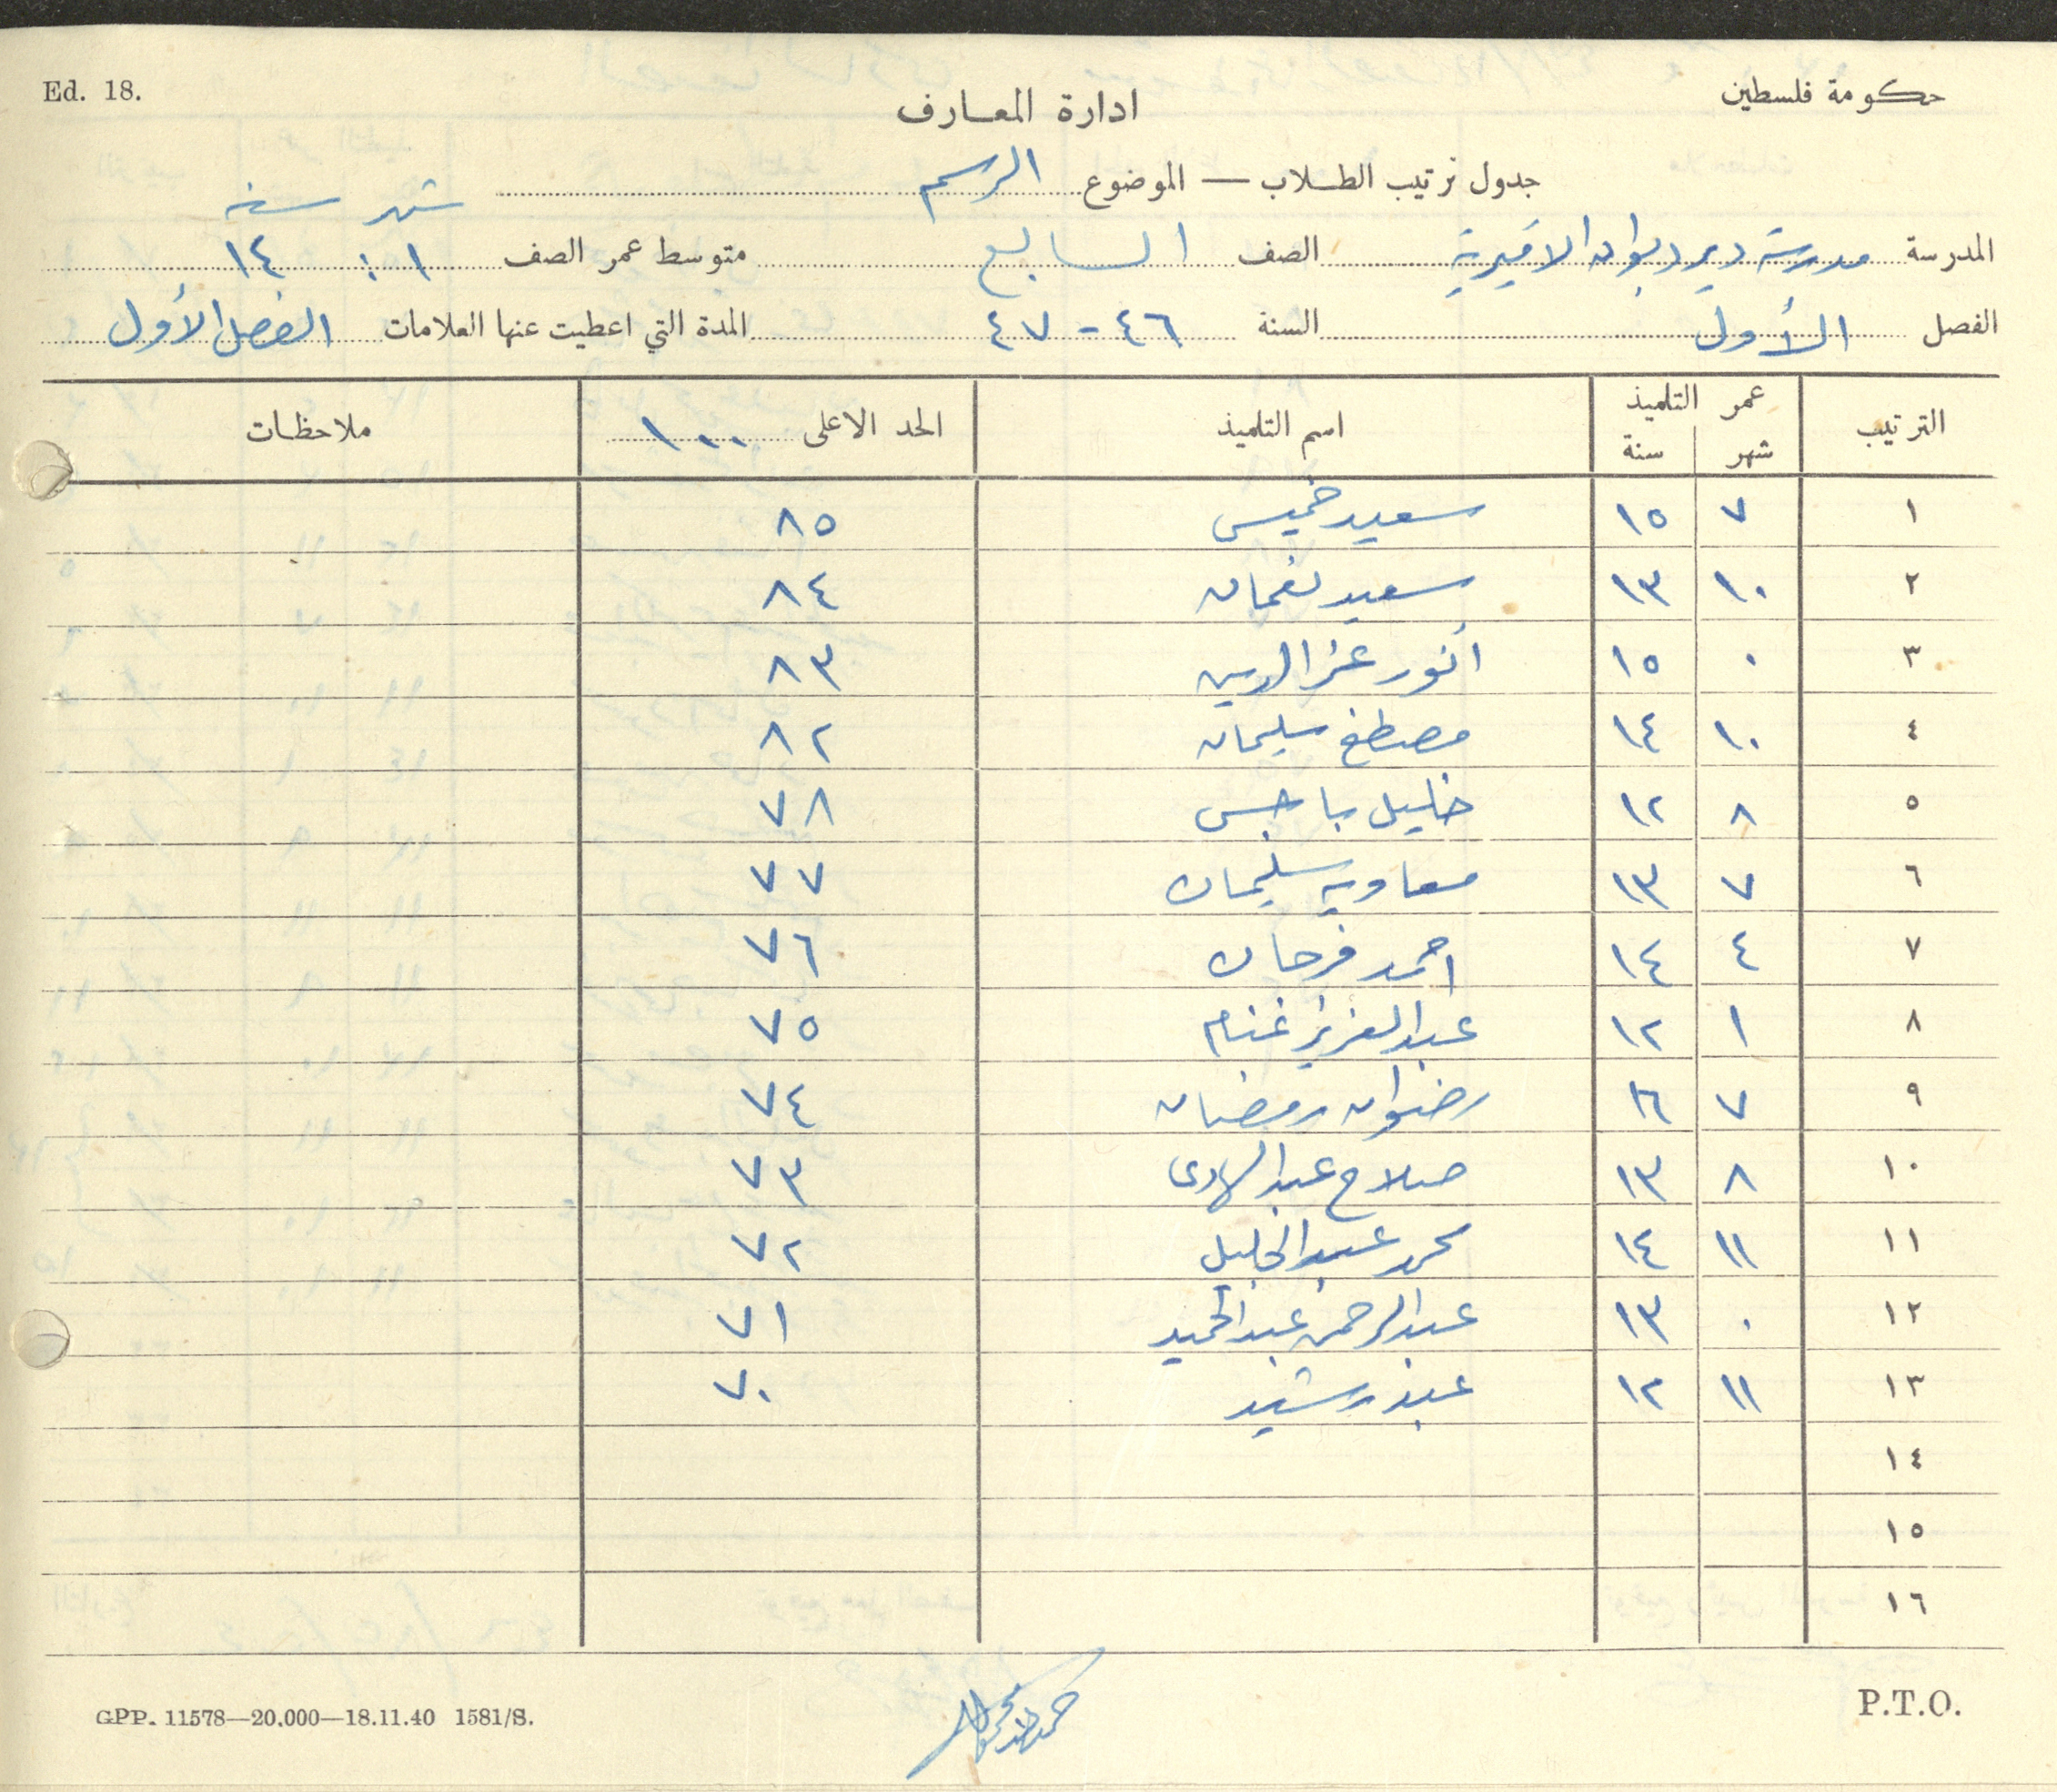 Ed. 18.
حكومة فلسطين
ادارة المعارف
جدول ترتيب الطلاب — الموضوع الرسم
شهر سنه
المدرسة مدرسة دير ديوان الاميرية الصف السابع متوسط عمر الصف ١ : ١٤
الفصل الأول السنة ٤٦ - ٤٧ المدة التي اعطيت عنها العلامات الفصل الأول
الترتيب عمر التلميذ شهر سنة اسم التلميذ الحد الاعلى ١٠٠ ملاحظات
١ ٧ ١٥ سعيد خميس ٨٥
٢ ١٠ ١٣ سعيد نعمان ٨٤
٣ ٠ ١٥ أنور عز الدين ٨٣
٤ ١٠ ١٤ مصطفى سليمان ٨٢
٥ ٨ ١٢ خليل باجس ٧٨
٦ ٧ ١٣ معاويه سليمان ٧٧
٧ ٤ ١٤ احمد فرحان ٧٦
٨ ١ ١٢ عبد العزيز غنام ٧٥
٩ ٧ رضوان رمضان ٧٤
١٠ ٨ ١٣ صلاح عبد الهادى ٧٣
١١ ١١ ١٤ محمد عبد الجليل ٧٢
١٢ ٠ ١٣ عبد الرحمن عبد الحميد ٧١
١٣ ١١ ١٢ عبد رشيد ٧٠
١٤
١٥
١٦
GPP. 11578—20,000—18.11.40 1581/S.
P.T.O.